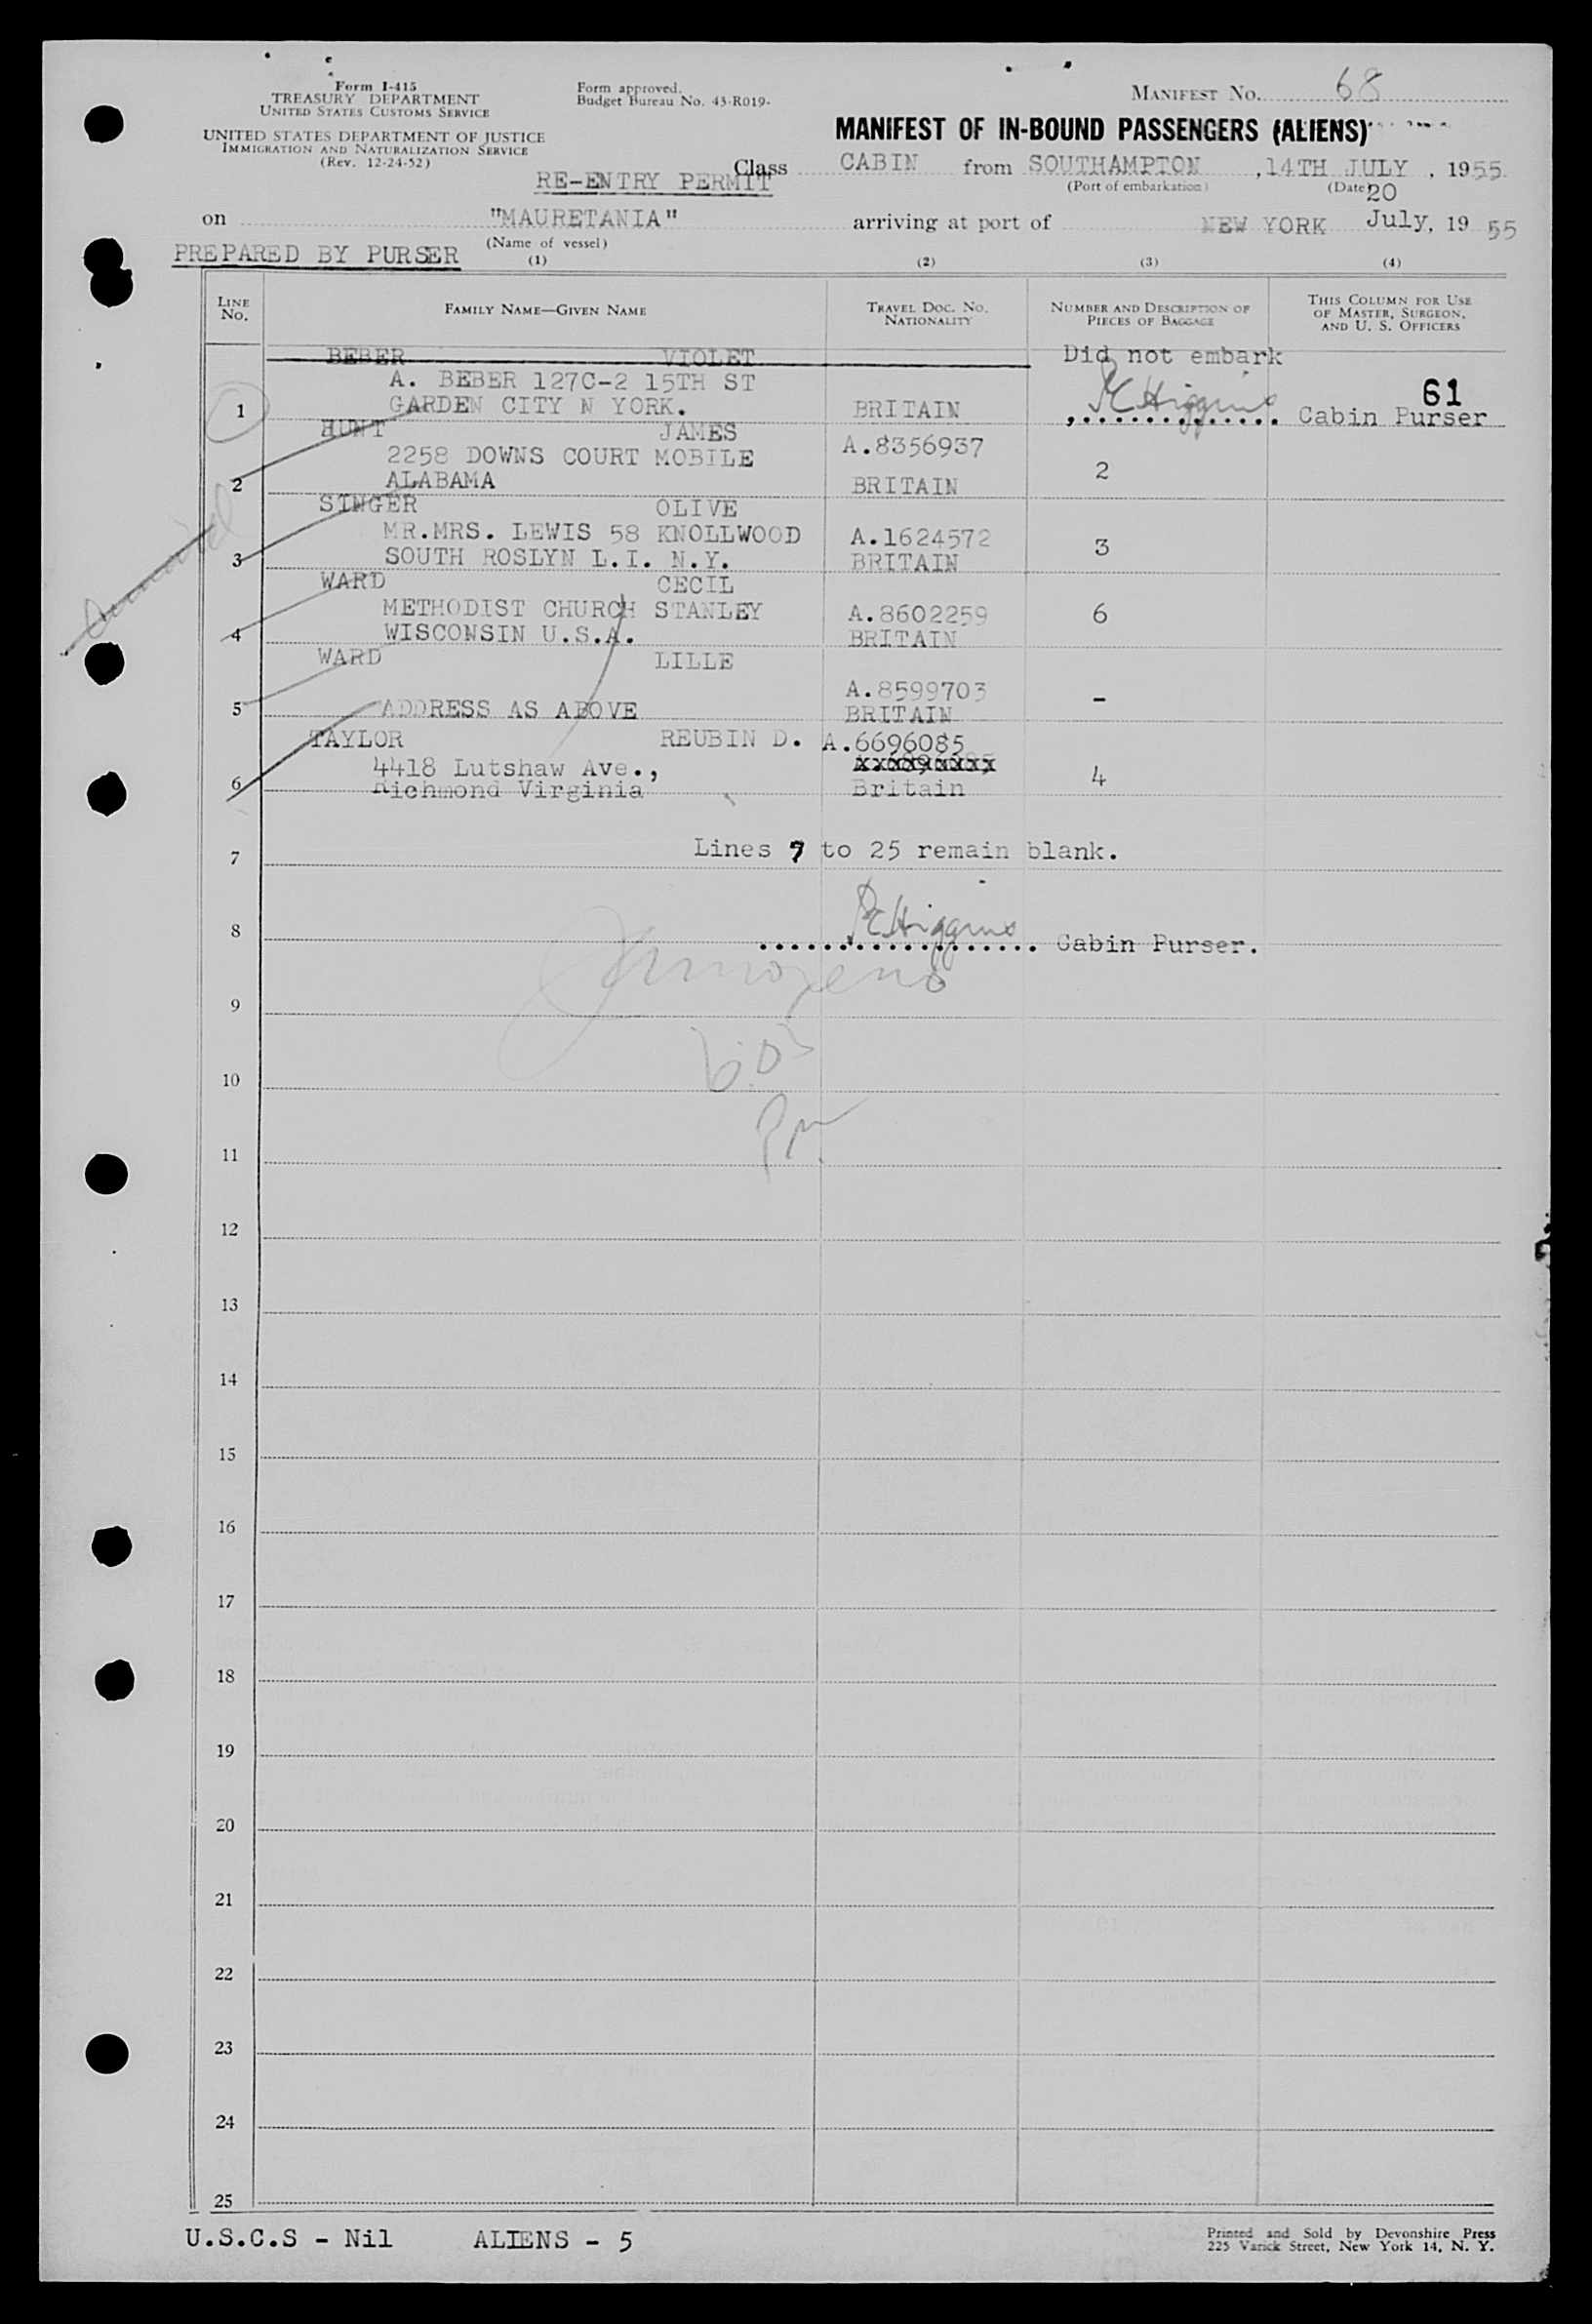 Form I-415
TREASURY DEPARTMENT
UNITED STATES CUSTOMS SERVICE
UNITED STATES DEPARTMENT OF JUSTICE
IMMIGRATION AND NATURALIZATION SERVICE
(Rev. 12-24-52)
Form approved.
Budget Bureau No. 43-R019-
MANIFEST No. 68
MANIFEST OF IN-BOUND PASSENGERS (ALIENS)
RE-ENTRY PERMIT
Class CABIN from SOUTHAMPTON, 14TH JULY, 1955
(Port of embarkation) (Date)
on "MAURETANIA" arriving at port of NEW YORK 20 July, 1955
(Name of vessel)
PREPARED BY PURSER
(1) (2) (3) (4)
LINE No. FAMILY NAME—GIVEN NAME TRAVEL DOC. No. NATIONALITY NUMBER AND DESCRIPTION OF PIECES OF BAGGAGE THIS COLUMN FOR USE OF MASTER, SURGEON, AND U. S. OFFICERS
BEBER VIOLET Did not embark
A. BEBER 127C-2 15TH ST 61
1 GARDEN CITY N YORK. BRITAIN Higgins Cabin Purser
HUNT JAMES A.8356937
2258 DOWNS COURT MOBILE 2
2 ALABAMA BRITAIN
SINGER OLIVE
MR.MRS. LEWIS 58 KNOLLWOOD A.1624572 3
3 SOUTH ROSLYN L.I. N.Y. BRITAIN
WARD CECIL
METHODIST CHURCH STANLEY A.8602259 6
4 WISCONSIN U.S.A. BRITAIN
WARD LILLE
A.8599703 -
5 ADDRESS AS ABOVE BRITAIN
TAYLOR REUBIN D. A.6696085
4418 Lutshaw Ave., 4
6 Richmond Virginia Britain
7 Lines 7 to 25 remain blank.
8 Higgins Cabin Purser.
9
10
11
12
13
14
15
16
17
18
19
20
21
22
23
24
25
U.S.C.S - Nil ALIENS - 5
Printed and Sold by Devonshire Press
225 Varick Street, New York 14, N. Y.